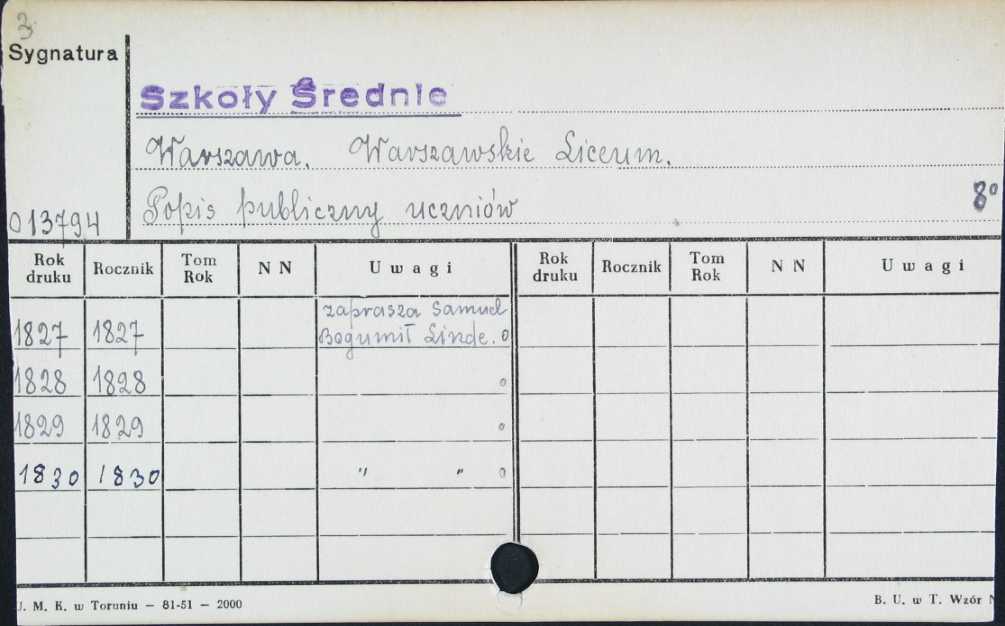 3
Sygnatura
Szkoły Średnie
Warszawa. Warszawskie Liceum.
Popis publiczny uczniów 8°
013794
Rok druku Rocznik Tom Rok N N Uwagi Rok druku Rocznik Tom Rok N N Uwagi
zaprasza Samuel
1827 1827 Bogumił Linde. o
1828 1828 o
1829 1829 o
1830 1830 " " o
U. M. K. w Toruniu – 81-51 – 2000 B. U. w T. Wzór N